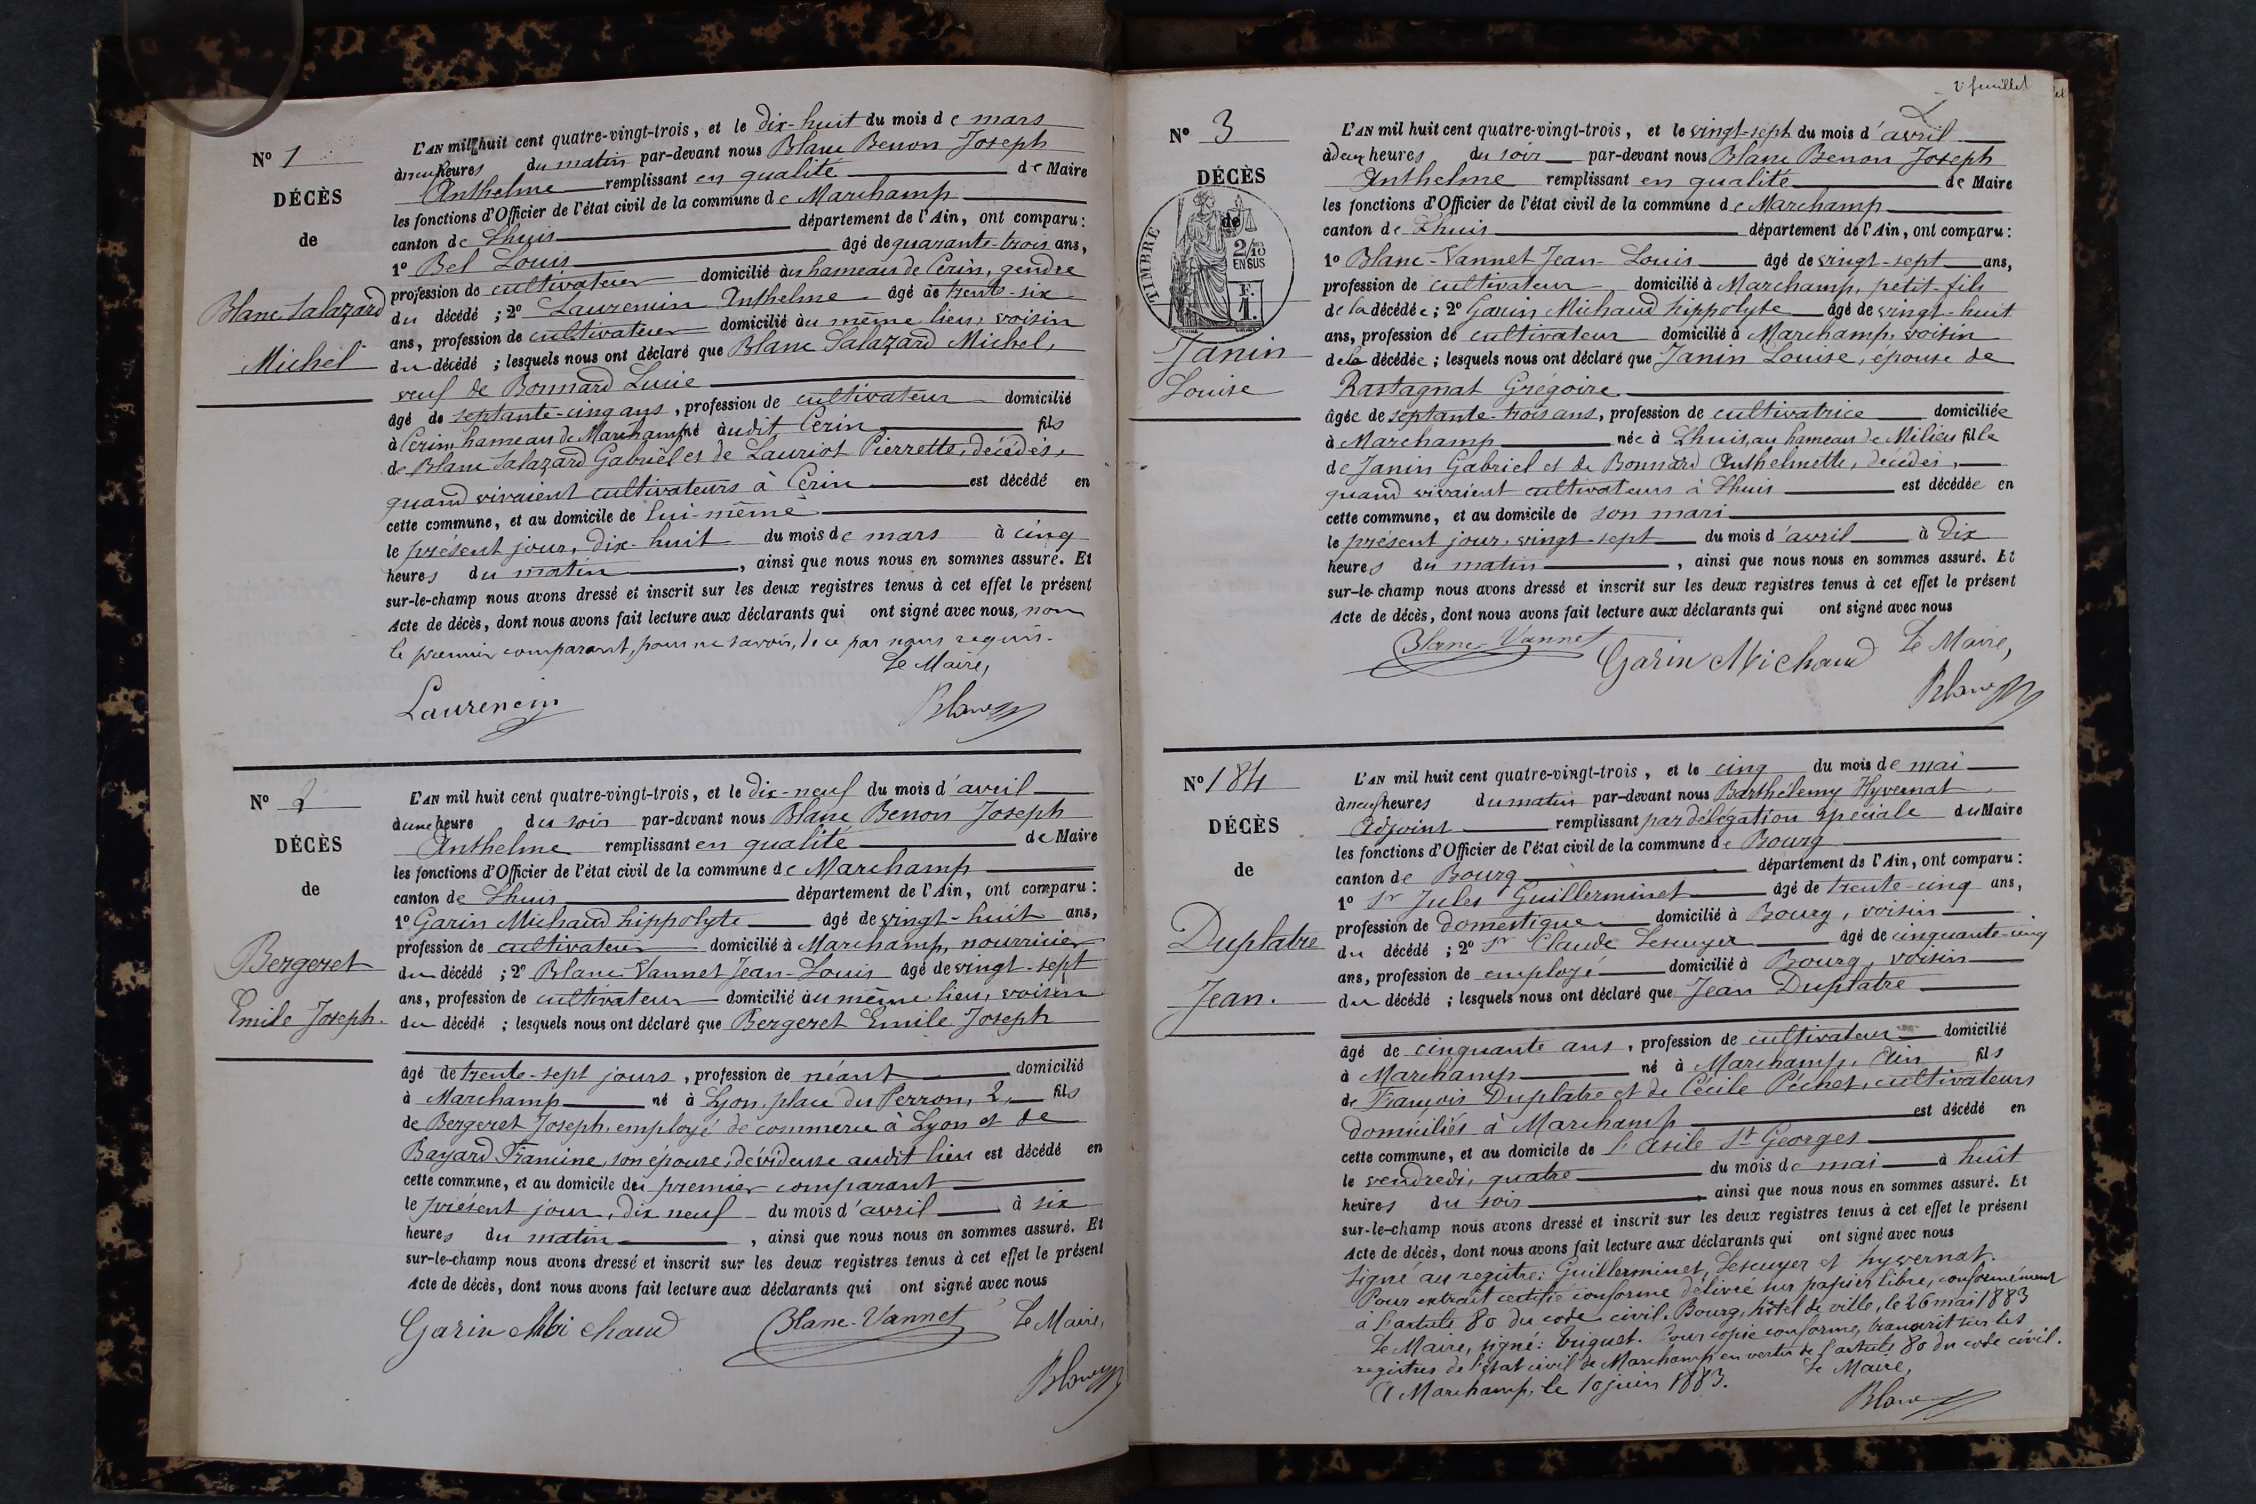 N° 1
DÉCÈS
de
Blanc Salazard
Michel
L'AN mil huit cent quatre-vingt-trois, et le dix-huit du mois de mars
à neuf heures du matin par-devant nous Blanc Benon Joseph
Anthelme remplissant en qualité de Maire
les fonctions d'Officier de l'état civil de la commune de Marchamp
canton de Lhuis département de l'Ain, ont comparu:
1° Bel Louis âgé de quarante-trois ans,
profession de cultivateur domicilié au hameau de Cerin, gendre
du décédé ; 2° Laurencin Anthelme âgé de trente-six
ans, profession de cultivateur domicilié au même lieu, voisin
du décédé ; lesquels nous ont déclaré que Blanc Salazard Michel,
veuf de Bonnard Lucie
âgé de septante-cinq ans, profession de cultivateur domicilié
à Cerin, hameau de Marchamp né audit Cerin fils
de Blanc Salazard Gabriel et de Lauriot Pierrette, décédés,
quand vivaient cultivateurs à Cerin est décédé en
cette commune, et au domicile de lui-même
le présent jour, dix-huit du mois de mars à cinq
heures du matin, ainsi que nous nous en sommes assuré. Et
sur-le-champ nous avons dressé et inscrit sur les deux registres tenus à cet effet le présent
Acte de décès, dont nous avons fait lecture aux déclarants qui ont signé avec nous, non
le premier comparant, pour ne savoir, de ce par nous requis.
Le Maire,
Laurencin Blanc
N° 2
DÉCÈS
de
Bergeret
Emile Joseph.
L'AN mil huit cent quatre-vingt-trois, et le dix-neuf du mois d'avril
à une heure du soir par-devant nous Blanc Benon Joseph
Anthelme remplissant en qualité de Maire
les fonctions d'Officier de l'état civil de la commune de Marchamp
canton de Lhuis département de l'Ain, ont comparu:
1° Garin Michaud hippolyte âgé de vingt-huit ans,
profession de cultivateur domicilié à Marchamp, nourricier
du décédé ; 2° Blanc-Vannet Jean-Louis âgé de vingt-sept
ans, profession de cultivateur domicilié au même lieu, voisin
du décédé ; lesquels nous ont déclaré que Bergeret Emile Joseph
âgé de trente-sept jours, profession de néant domicilié
à Marchamp né à Lyon, place du Perron, 2, fils
de Bergeret Joseph, employé de commerce à Lyon et de
Bayard Francine, son épouse, dévideuse audit lieu est décédé en
cette commune, et au domicile du premier comparant
le présent jour, dix neuf du mois d'avril à six
heures du matin, ainsi que nous nous en sommes assuré. Et
sur-le-champ nous avons dressé et inscrit sur les deux registres tenus à cet effet le présent
Acte de décès, dont nous avons fait lecture aux déclarants qui ont signé avec nous
Garin Michaud Blanc-Vannet Le Maire,
Blanc
2e feuillet
N° 3
DÉCÈS
de
TIMBRE
2/10
EN SUS
F.
1.
Janin
Louise
L'AN mil huit cent quatre-vingt-trois, et le vingt-sept du mois d'avril
à deux heures du soir par-devant nous Blanc Benon Joseph
Anthelme remplissant en qualité de Maire
les fonctions d'Officier de l'état civil de la commune de Marchamp
canton de Lhuis département de l'Ain, ont comparu:
1° Blanc-Vannet Jean-Louis âgé de vingt-sept ans,
profession de cultivateur domicilié à Marchamp, petit-fils
de la décédée ; 2° Garin Michaud hippolyte âgé de vingt-huit
ans, profession de cultivateur domicilié à Marchamp, voisin
de la décédée ; lesquels nous ont déclaré que Janin Louise, épouse de
Rastagnat Grégoire
âgée de septante-trois ans, profession de cultivatrice domiciliée
à Marchamp née à Lhuis, au hameau de Milieu fille
de Janin Gabriel et de Bonnard Anthelmette, décédés,
quand vivaient cultivateurs à Lhuis est décédée en
cette commune, et au domicile de son mari
le présent jour, vingt-sept du mois d'avril à dix
heures du matin, ainsi que nous nous en sommes assuré. Et
sur-le-champ nous avons dressé et inscrit sur les deux registres tenus à cet effet le présent
Acte de décès, dont nous avons fait lecture aux déclarants qui ont signé avec nous
Blanc-Vannet Garin Michaud Le Maire,
Blanc
N° 184
DÉCÈS
de
Duplatre
Jean.
L'AN mil huit cent quatre-vingt-trois, et le cinq du mois de mai
à neuf heures du matin par-devant nous Barthélemy Hyvernat
Adjoint remplissant par délégation spéciale du Maire
les fonctions d'Officier de l'état civil de la commune de Bourg
canton de Bourg département de l'Ain, ont comparu:
1° Sr Jules Guillerminet âgé de trente-cinq ans,
profession de domestique domicilié à Bourg, voisin
du décédé ; 2° Sr Claude Lescuyer âgé de cinquante-cinq
ans, profession de employé domicilié à Bourg, voisin
du décédé ; lesquels nous ont déclaré que Jean Duplatre
âgé de cinquante ans, profession de cultivateur domicilié
à Marchamp né à Marchamp, Ain fils
de François Duplatre et de Cécile Péchet, cultivateurs
domiciliés à Marchamp est décédé en
cette commune, et au domicile de l'asile St Georges
le vendredi, quatre du mois de mai à huit
heures du soir ainsi que nous nous en sommes assuré. Et
sur-le-champ nous avons dressé et inscrit sur les deux registres tenus à cet effet le présent
Acte de décès, dont nous avons fait lecture aux déclarants qui ont signé avec nous
Signé au registre: Guillerminet, Lescuyer et hyvernat.
Pour extrait certifié conforme délivré sur papier libre, conformément
à l'article 80 du code civil. Bourg, hôtel de ville, le 26 mai 1883
Le Maire, signé: briguet. Pour copie conforme, transcrit sur les
registres de l'état civil de Marchamp en vertu de l'article 80 du code civil.
A Marchamp, le 10 juin 1883. Le Maire,
Blanc